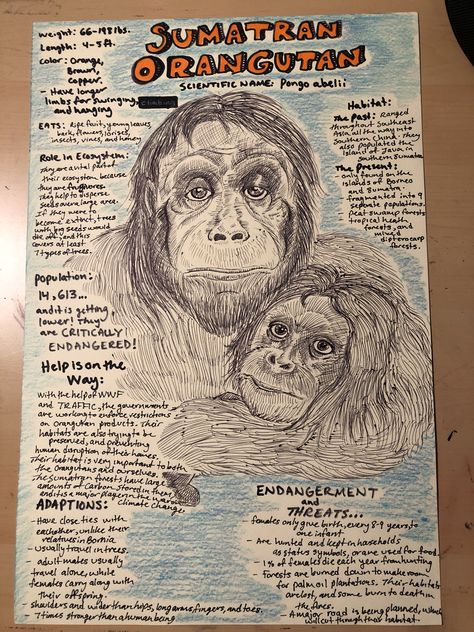 SUMATRAN
ORANGUTAN
SCIENTIFIC NAME: Pongo abelii
Weight: 66-198 lbs.
Length: 4-5 ft.
Color: Orange,
Brown,
Copper.
- Have longer
limbs for swinging, climbing,
and hanging
EATS: ripe fruit, young leaves,
bark, flowers, lorises,
insects, vines, and honey
Role in Ecosystem:
They are a vital part of
their ecosystem because
they are frugivores.
They help to disperse
seeds over a large area.
If they were to
become extinct, trees
with big seeds would
die off, and this
covers at least
7 types of trees.
Population:
14,613...
and it is getting
lower! They
are CRITICALLY
ENDANGERED!
Help is on the
Way:
With the help of WWF
and TRAFFIC, the governments
are working to enforce restrictions
on orangutan products. Their
habitats are also trying to be
preserved, and preventing
human disruption of their homes.
Their habitat is very important to both
the Orangutans and ourselves.
The Sumatran forests have large
amounts of Carbon stored in them,
and it is a major player in the war against
Climate Change
ADAPTIONS:
- Have close ties with
eachother, unlike their
relatives in Bornia
- Usually travel in trees.
- adult males usually
travel alone, while
females carry along with
their offspring.
- Shoulders and wider than hips, long arms, fingers, and toes.
- 7 times stronger than a human being.
Habitat:
The Past: Ranged
throughout Southeast
Asia, all the way into
Southern China. They
also populated the
island of Java in
southern Sumatra.
The Present:
only found on the
islands of Borneo
and Sumatra.
- fragmented into 9
seperate populations.
Peat swamp forests
tropical heath
forests, and
mixed
dipterocarp
forests.
ENDANGERMENT
and
THREATS...
- females only give birth, every 8-9 years to
one infant
- Are hunted and kept in households
as status symbols, or are used for food.
- 1% of females die each year from hunting
- Forests are burned down to make room
for palm oil plantations. Their habitats
are lost, and some burn to death in
the fires.
- A major road is being planned, which
will cut through their habitat.